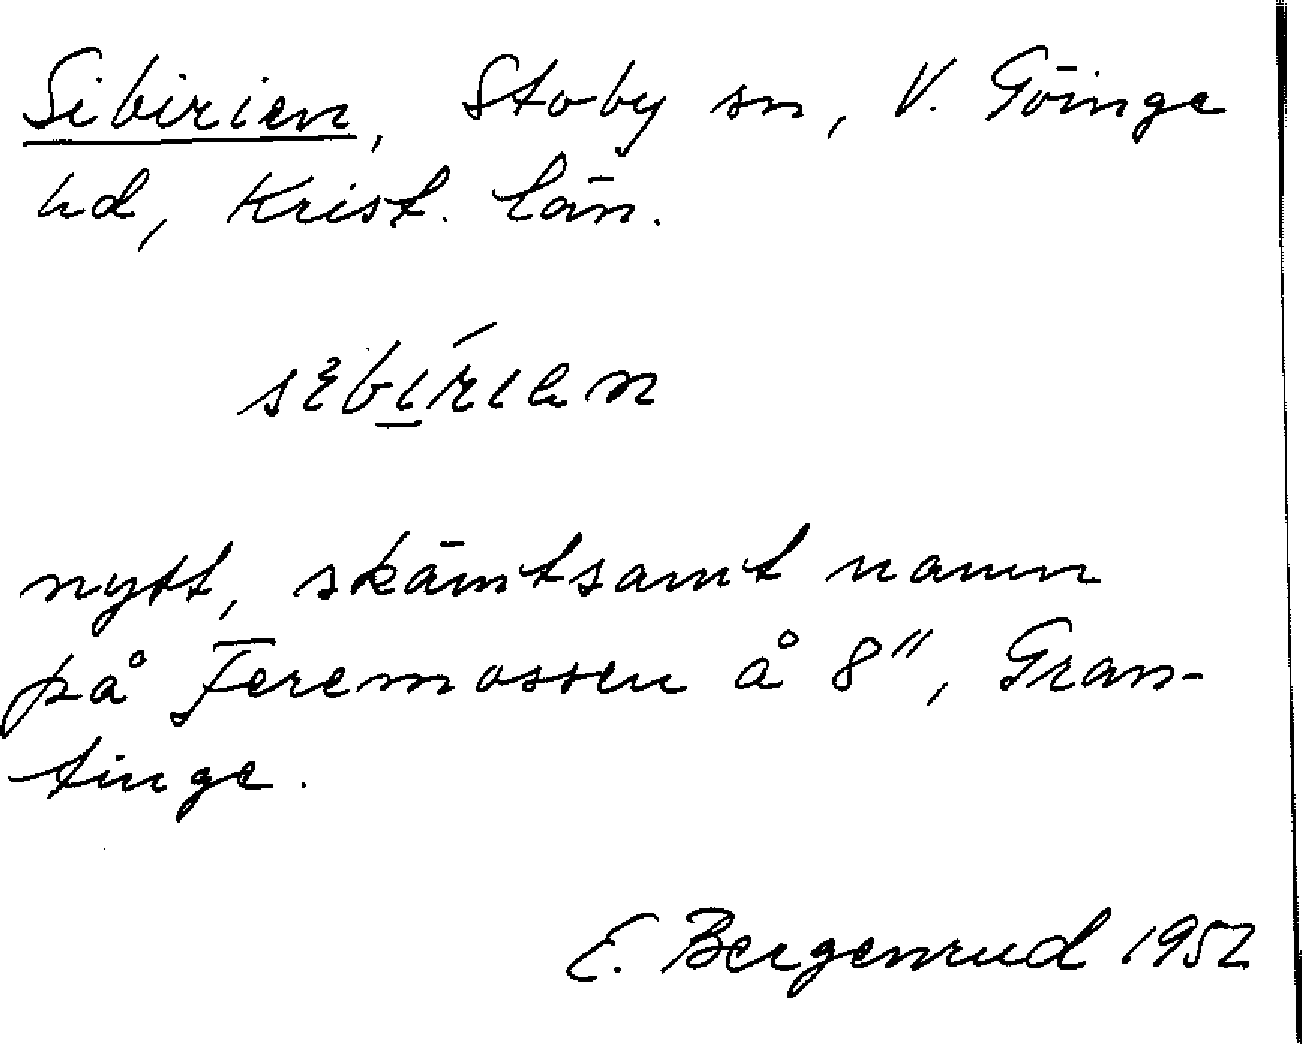 Sibirien, Stoby sn, V. Göinge
hd, Krist. län.
nytt, skämtsamt namn
på Feremossen å 8", Gran-
tinge.
E. Bergenrud 1952